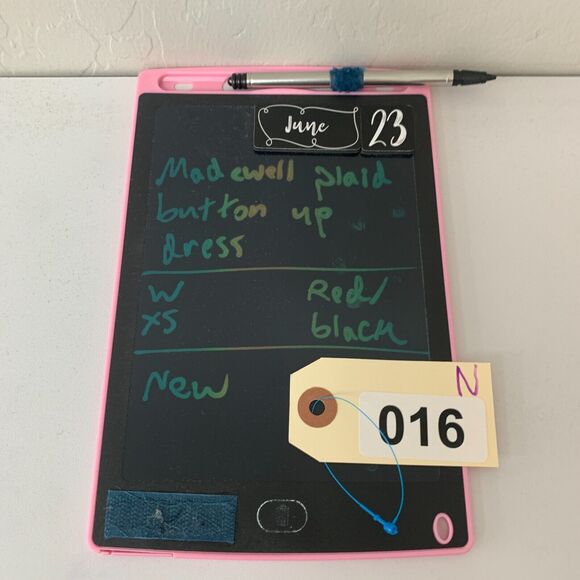 June 23
Madewell plaid
button up
dress
W Red/
XS black
New
N
016